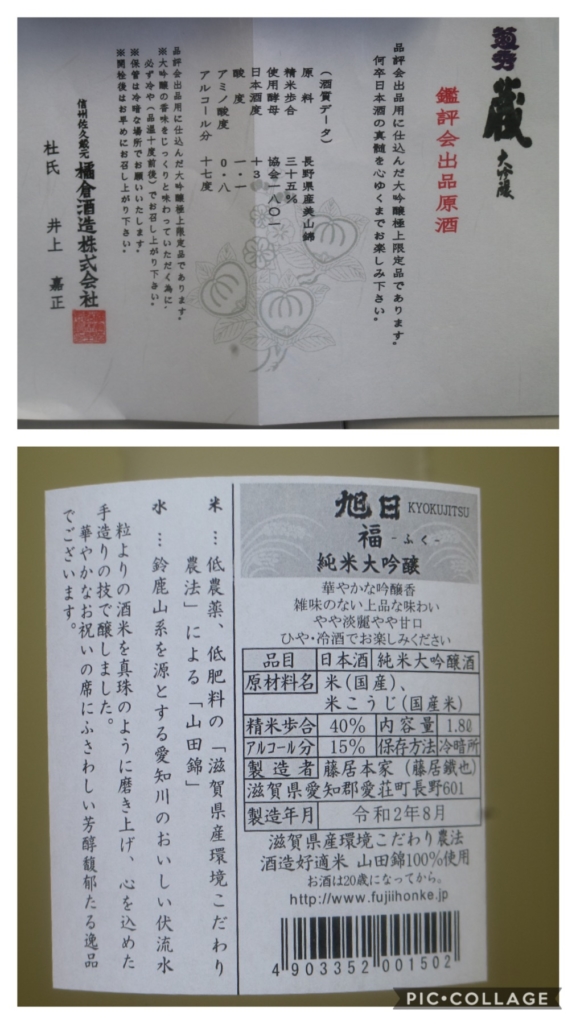 菊秀
蔵 大吟醸
鑑評会出品原酒
品評会出品用に仕込んだ大吟醸極上限定品であります。
何卒日本酒の真髄を心ゆくまでお楽しみ下さい。
(酒質データ)
原料 長野県産美山錦
精米歩合 三十五%
使用酵母 協会一八〇一
日本酒度 +3
酸度 一・一
アミノ酸度 〇・八
アルコール分 十七度
品評会出品用に仕込んだ大吟醸極上限定品であります。
※大吟醸の香味をじっくりと味わっていただく為に、
必ず冷や(品温十度前後)でお召し上がり下さい。
※保管は冷暗な場所でお願いいたします。
※開栓後はお早めにお召し上がり下さい。
信州佐久蔵元 橘倉酒造株式会社
杜氏 井上 嘉正
旭日 KYOKUJITSU
福 -ふく-
純米大吟醸
華やかな吟醸香
雑味のない上品な味わい
やや淡麗やや甘口
ひや・冷酒でお楽しみください
品目 日本酒 純米大吟醸酒
原材料名 米(国産)、
米こうじ(国産米)
精米歩合 40% 内容量 1.8ℓ
アルコール分 15% 保存方法 冷暗所
製造者 藤居本家(藤居鐵也)
滋賀県愛知郡愛荘町長野601
製造年月 令和2年8月
滋賀県産環境こだわり農法
酒造好適米 山田錦100%使用
お酒は20歳になってから。
http://www.fujiihonke.jp
4 903352 001502
米…低農薬、低肥料の「滋賀県産環境こだわり
農法」による「山田錦」
水…鈴鹿山系を源とする愛知川のおいしい伏流水
粒よりの酒米を真珠のように磨き上げ、心を込めた
手造りの技で醸しました。
華やかなお祝いの席にふさわしい芳醇馥郁たる逸品
でございます。
PIC•COLLAGE